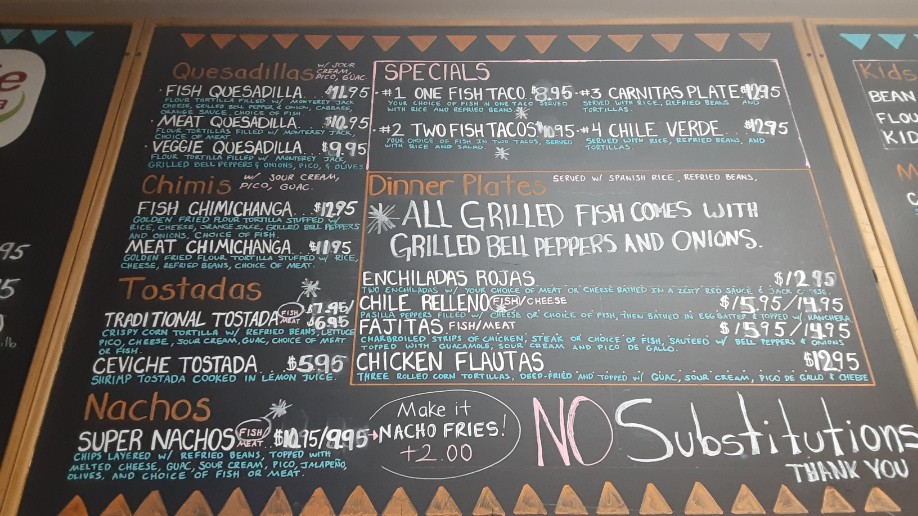 Quesadillas w/ SOUR CREAM, PICO, GUAC.
· FISH QUESADILLA $11.95
FLOUR TORTILLA FILLED W/ MONTEREY JACK
CHEESE, GRILLED BELL PEPPER & ONION, CABBAGE,
ORANGE SAUCE, CHOICE OF FISH.
· MEAT QUESADILLA $10.95
FLOUR TORTILLA FILLED W/ MONTEREY JACK,
CHOICE OF MEAT.
· VEGGIE QUESADILLA.. $9.95
FLOUR TORTILLA FILLED W/ MONTEREY JACK,
GRILLED BELL PEPPERS & ONIONS, PICO, & OLIVES
Chimis w/ SOUR CREAM,
PICO, GUAC.
FISH CHIMICHANGA... $12.95
GOLDEN FRIED FLOUR TORTILLA STUFFED W/
RICE, CHEESE, ORANGE SAUCE, GRILLED BELL PEPPERS
AND ONIONS, CHOICE OF FISH.
MEAT CHIMICHANGA.. $11.95
GOLDEN FRIED FLOUR TORTILLA STUFFED W/ RICE,
CHEESE, REFRIED BEANS, CHOICE OF MEAT.
Tostadas
TRADITIONAL TOSTADA FISH MEAT $7.95/
$6.95
CRISPY CORN TORTILLA W/ REFRIED BEANS, LETTUCE
PICO, CHEESE, SOUR CREAM, GUAC, CHOICE OF MEAT
OR FISH.
CEVICHE TOSTADA ... $5.95
SHRIMP TOSTADA COOKED IN LEMON JUICE.
Nachos
SUPER NACHOS FISH MEAT $10.95/9.95
CHIPS LAYERED W/ REFRIED BEANS, TOPPED WITH
MELTED CHEESE, GUAC, SOUR CREAM, PICO, JALAPEÑO,
OLIVES, AND CHOICE OF FISH OR MEAT.
Make it
NACHO FRIES!
+2.00
SPECIALS
· #1 ONE FISH TACO. 8.95
YOUR CHOICE OF FISH IN ONE TACO SERVED
WITH RICE AND REFRIED BEANS
· #2 TWO FISH TACOS $10.95
YOUR CHOICE OF FISH IN TWO TACOS, SERVED
WITH RICE AND SALAD.
· #3 CARNITAS PLATE $12.95
SERVED WITH RICE, REFRIED BEANS, AND
TORTILLAS
· #4 CHILE VERDE... $12.95
SERVED WITH RICE, REFRIED BEANS, AND
TORTILLAS.
Dinner Plates SERVED W/ SPANISH RICE, REFRIED BEANS,
ALL GRILLED FISH COMES WITH
GRILLED BELL PEPPERS AND ONIONS.
ENCHILADAS ROJAS $12.95
TWO ENCHILADAS W/ YOUR CHOICE OF MEAT OR CHEESE BATHED IN A ZESTY RED SAUCE & JACK CHEESE
CHILE RELLENO FISH/CHEESE $15.95/14.95
PASILLA PEPPERS FILLED W/ CHEESE OR CHOICE OF FISH, THEN BATHED IN EGG BATTER & TOPPED W/ RANCHERA
FAJITAS FISH/MEAT $15.95/14.95
CHARBROILED STRIPS OF CHICKEN, STEAK OR CHOICE OF FISH, SAUTEED W/ BELL PEPPERS & ONIONS
TOPPED WITH GUACAMOLE, SOUR CREAM AND PICO DE GALLO.
CHICKEN FLAUTAS $12.95
THREE ROLLED CORN TORTILLAS, DEEP-FRIED AND TOPPED W/ GUAC, SOUR CREAM, PICO DE GALLO & CHEESE
NO Substitutions
THANK YOU
Kids
BEAN
FLOU
KID
95
5
lb